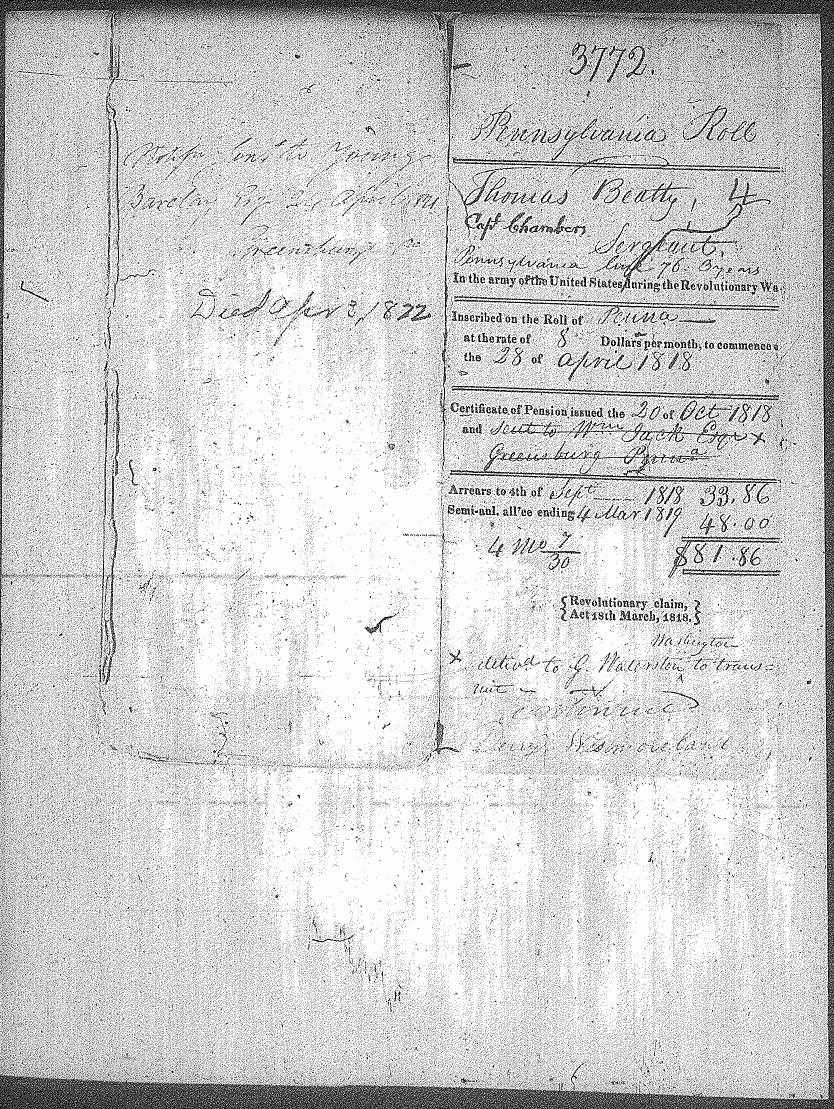 Notifn sent to Young
Barclay Esq 2 April
Greensburg
Died Apr 3, 1822
3772.
Pennsylvania Roll
Thomas Beatty, 4
Capt Chambers
Sergeant,
Pennsylvania line 76. 3 years
In the army of the United States during the Revolutionary Wa
Inscribed on the Roll of Penna
at the rate of 8 Dollars per month, to commence
the 28 of April 1818
Certificate of Pension issued the 20 of Oct 1818
and sent to Wm Jack Esqr x
Greensburg Penna
Arrears to 4th of Sept 1818 33.86
Semi-anl. all'ce ending 4 Mar 1819 48.00
4 Mo 7/30 $81.86
{Revolutionary claim,}
{Act 18th March, 1818.}
Washington
x deliv'd to G. Waterston to trans=
mit
continued
Derry Westmoreland